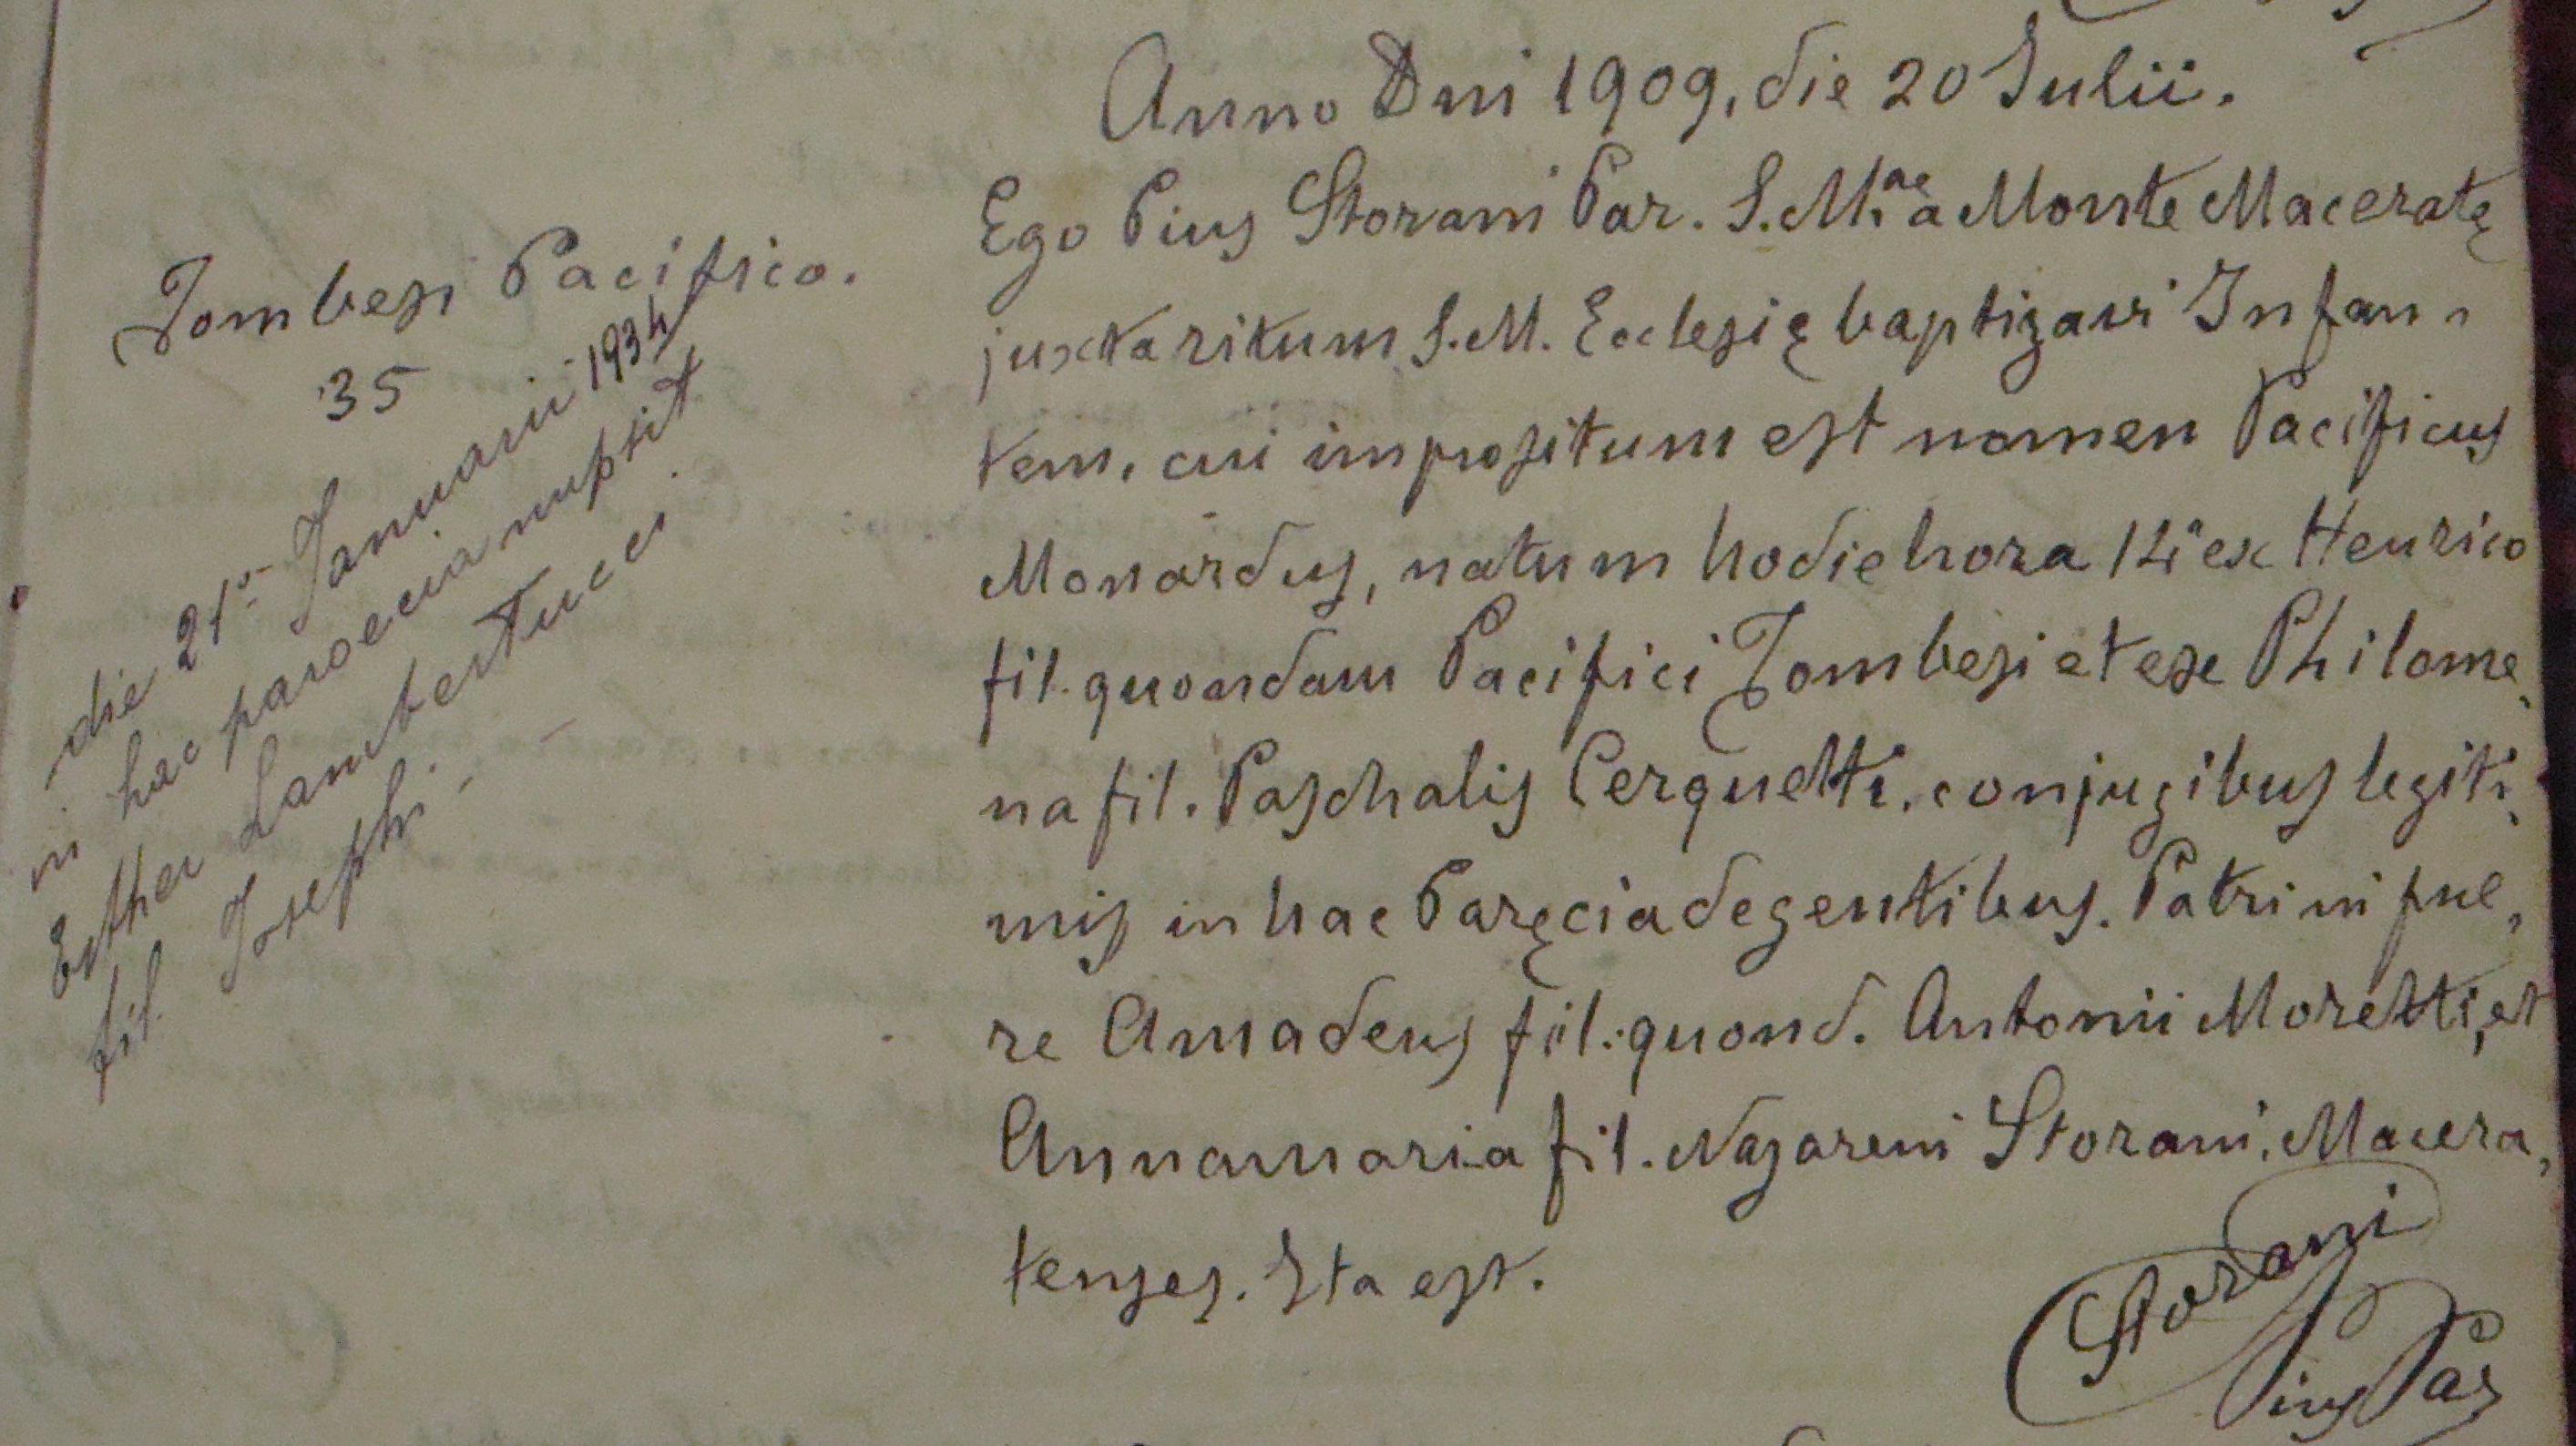 Tombesi Pacifico.
35
die 21º Januarii 1934
in hac paroecia nupsit
Esther Lambertucci
fil. Josephi. -
Anno Dni 1909, die 20 Julii.
Ego Pius Storani Par. S. M.ae a Monte Maceratę
juxta ritum S. M. Ecclesię baptizavi Infan-
tem, cui impositum est nomen Pacificus
Monardus, natum hodie hora 14ª ex Henrico
fil. quondam Pacifici Tombesi et ex Philome-
na fil. Paschalis Cerquetti, conjugibus legiti-
mis in hac Paręcia degentibus. Patrini fue-
re Amadeus fil. quond. Antonii Moretti, et
Annamaria fil. Nazareni Storani, Macera-
tenses. Ita est.
Storani
Pius Par